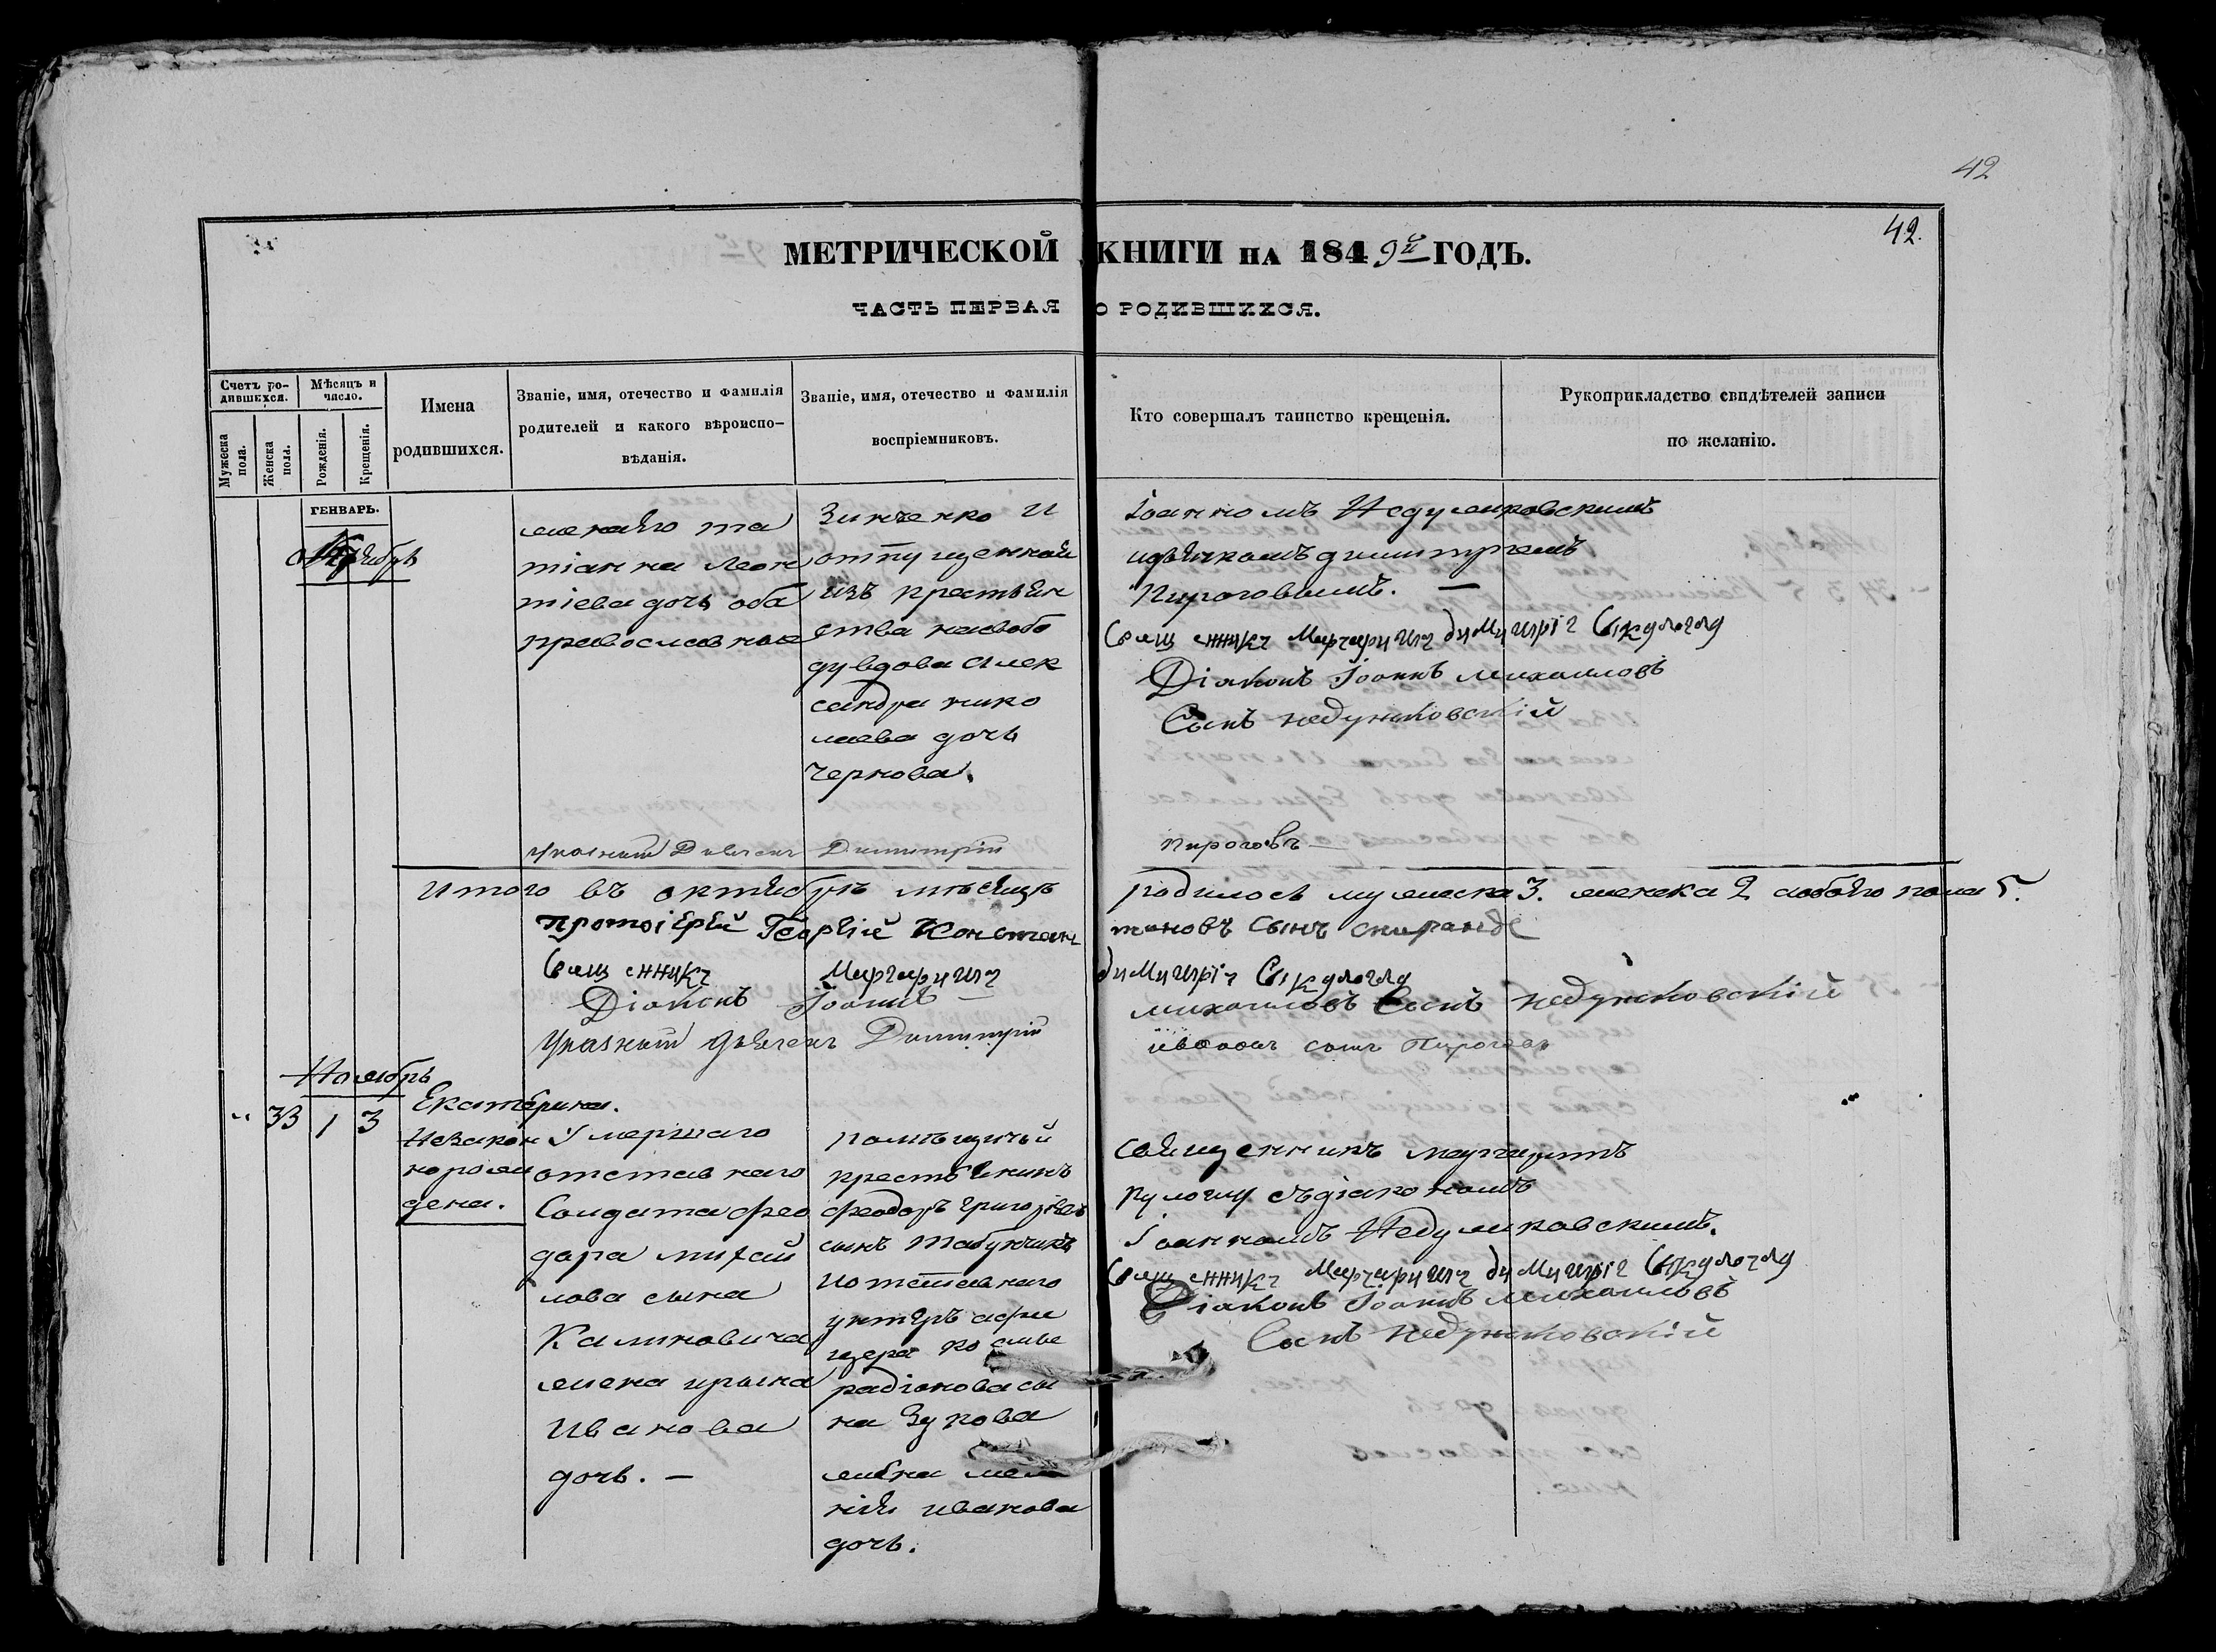 42
42.
МЕТРИЧЕСКОЙ КНИГИ НА 1849й ГОДЪ.
ЧАСТЬ ПЕРВАЯ О РОДИВШИХСЯ.
Счетъ ро-
дившихся.
Мужеска пола.
Женска пола.
Мѣсяцъ и
число.
Рожденія.
Крещенія.
Имена
родившихся.
Званіе, имя, отечество и фамилія
родителей и какого вѣроиспо-
вѣданія.
Званіе, имя, отечество и фамилія
воспріемниковъ.
Кто совершалъ таинство крещенія.
Рукоприкладство свидѣтелей записи
по желанію.
ГЕНВАРЬ.
жена его та
тіанна Леон
тіева дочь оба
православные
Зинченко и
отпущенная
изъ крестьян
ства на свобо
ду вдова Алек
сандра нико
лаева дочь
Чернова.
Іоанномъ Недумковскимъ
и дьячкомъ димитріемъ
Пироговымъ. —
Священникъ Маргаритъ димитріе
Діаконъ Іоаннъ михаиловъ
Сынъ недумковскій
Указный Дьячекъ Димитрій
Пироговъ —
Итого въ октябрѣ мѣсяцѣ родилось мужеска 3. женска 2 а обоего пола 5.
Протоіерей Георгій Констан тиновъ сынъ
Священникъ Маргаритъ димитріе
Діаконъ Іоаннъ михаиловъ Сынъ недумковскій
Указный Дьячекъ Димитрій сынъ Пироговъ
Ноябрь
" 33 1 3
Екатерина.
Незакон
норож
дена.
Умершаго
отставнаго
Солдата фео
дора михай
лова сына
Калиновича
жена ирина
Иванова
дочь. —
помѣщичьй
крестьянинъ
феодоръ григоріевъ
сынъ Табунчикъ
и отставнаго
унтеръ афи
цера
радіонова сы
на Зукова
жена мела
нія иванова
дочь.
Священникъ маргаритъ
съ діакономъ
Іоанномъ Недумковскимъ.
Священникъ Маргаритъ димитріе
Діаконъ Іоаннъ михаиловъ
Сынъ недумковскій